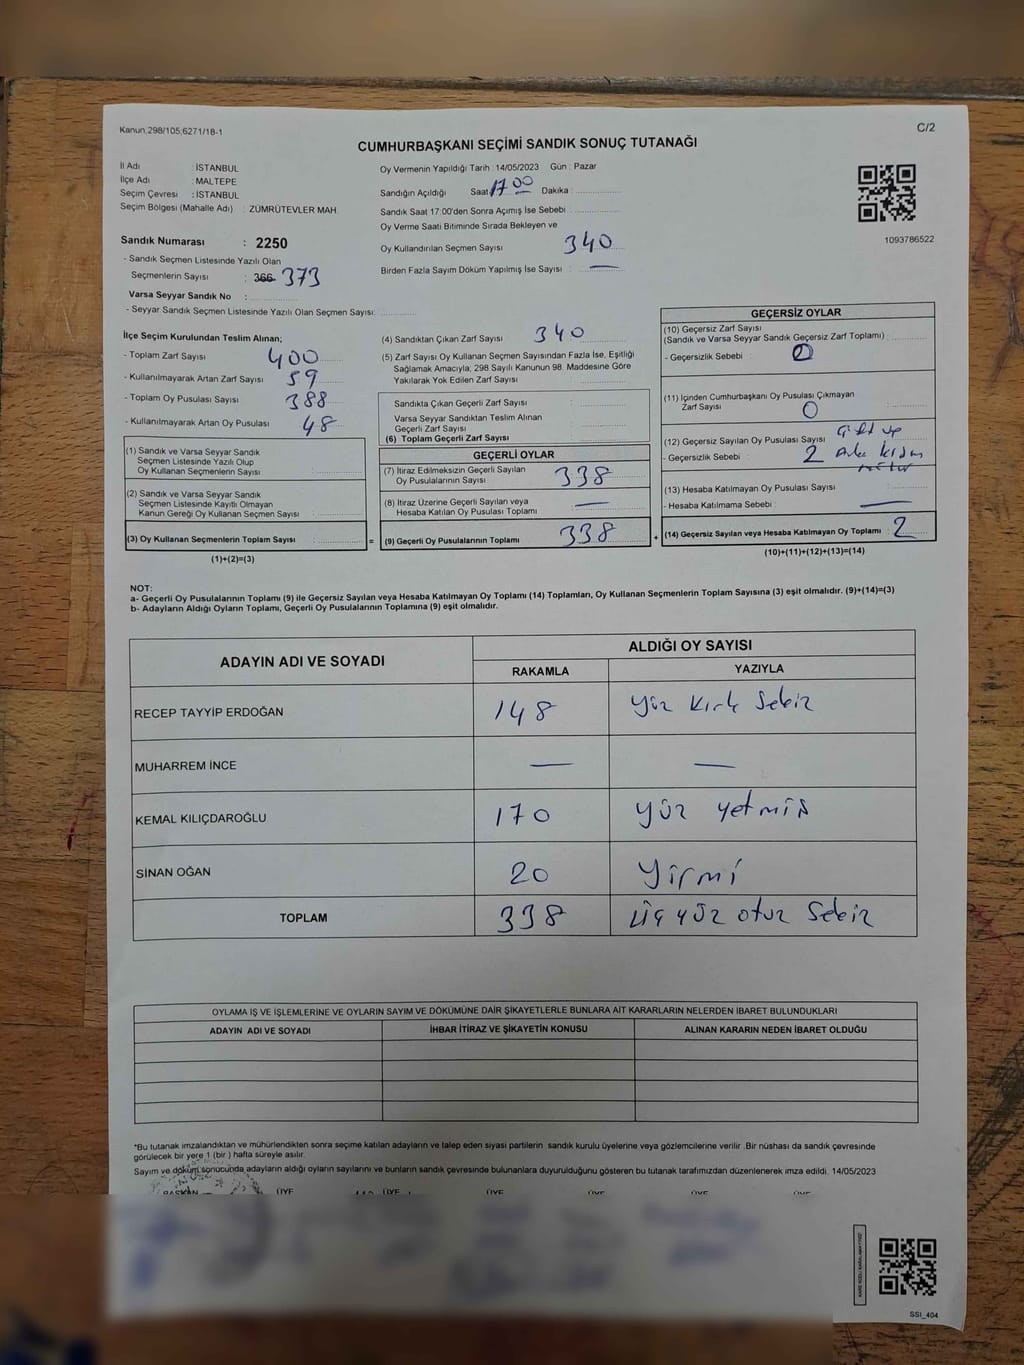 Kanun,298/105;6271/18-1
C/2
CUMHURBAŞKANI SEÇİMİ SANDIK SONUÇ TUTANAĞI
İl Adı : İSTANBUL
İlçe Adı : MALTEPE
Seçim Çevresi : İSTANBUL
Seçim Bölgesi (Mahalle Adı) : ZÜMRÜTEVLER MAH.
Oy Vermenin Yapıldığı Tarih :14/05/2023 Gün : Pazar
Sandığın Açıldığı Saat 17 00 Dakika :
Sandık Saat 17:00'den Sonra Açımış İse Sebebi :
Oy Verme Saati Bitiminde Sırada Bekleyen ve
Oy Kullandırılan Seçmen Sayısı 340
Birden Fazla Sayım Döküm Yapılmış İse Sayısı : —
1093786522
Sandık Numarası : 2250
- Sandık Seçmen Listesinde Yazılı Olan
Seçmenlerin Sayısı : 366 373
Varsa Seyyar Sandık No :
- Seyyar Sandık Seçmen Listesinde Yazılı Olan Seçmen Sayısı:
İlçe Seçim Kurulundan Teslim Alınan;
- Toplam Zarf Sayısı 400
- Kullanılmayarak Artan Zarf Sayısı 59
- Toplam Oy Pusulası Sayısı 388
- Kullanılmayarak Artan Oy Pusulası 48
(1) Sandık ve Varsa Seyyar Sandık
Seçmen Listesinde Yazılı Olup
Oy Kullanan Seçmenlerin Sayısı :
(2) Sandık ve Varsa Seyyar Sandık
Seçmen Listesinde Kayıtlı Olmayan
Kanun Gereği Oy Kullanan Seçmen Sayısı :
(3) Oy Kullanan Seçmenlerin Toplam Sayısı :
(1)+(2)=(3)
=
(4) Sandıktan Çıkan Zarf Sayısı 340
(5) Zarf Sayısı Oy Kullanan Seçmen Sayısından Fazla İse, Eşitliği
Sağlamak Amacıyla; 298 Sayılı Kanunun 98. Maddesine Göre
Yakılarak Yok Edilen Zarf Sayısı :
Sandıkta Çıkan Geçerli Zarf Sayısı :
Varsa Seyyar Sandıktan Teslim Alınan
Geçerli Zarf Sayısı :
(6) Toplam Geçerli Zarf Sayısı
GEÇERLİ OYLAR
(7) İtiraz Edilmeksizin Geçerli Sayılan
Oy Pusulalarının Sayısı : 338
(8) İtiraz Üzerine Geçerli Sayılan veya
Hesaba Katılan Oy Pusulası Toplamı : —
(9) Geçerli Oy Pusulalarının Toplamı : 338
+
GEÇERSİZ OYLAR
(10) Geçersiz Zarf Sayısı
(Sandık ve Varsa Seyyar Sandık Geçersiz Zarf Toplamı) :
- Geçersizlik Sebebi : 0
(11) İçinden Cumhurbaşkanı Oy Pusulası Çıkmayan
Zarf Sayısı 0
(12) Geçersiz Sayılan Oy Pusulası Sayısı
- Geçersizlik Sebebi : 2
(13) Hesaba Katılmayan Oy Pusulası Sayısı :
- Hesaba Katılmama Sebebi : —
(14) Geçersiz Sayılan veya Hesaba Katılmayan Oy Toplamı : 2
(10)+(11)+(12)+(13)=(14)
NOT:
a- Geçerli Oy Pusulalarının Toplamı (9) ile Geçersiz Sayılan veya Hesaba Katılmayan Oy Toplamı (14) Toplamları, Oy Kullanan Seçmenlerin Toplam Sayısına (3) eşit olmalıdır. (9)+(14)=(3)
b- Adayların Aldığı Oyların Toplamı, Geçerli Oy Pusulalarının Toplamına (9) eşit olmalıdır.
ADAYIN ADI VE SOYADI
ALDIĞI OY SAYISI
RAKAMLA YAZIYLA
RECEP TAYYİP ERDOĞAN 148 yüz kırk sekiz
MUHARREM İNCE — —
KEMAL KILIÇDAROĞLU 170 yüz yetmiş
SİNAN OĞAN 20 yirmi
TOPLAM 338 üç yüz otuz sekiz
OYLAMA İŞ VE İŞLEMLERİNE VE OYLARIN SAYIM VE DÖKÜMÜNE DAİR ŞİKAYETLERLE BUNLARA AİT KARARLARIN NELERDEN İBARET BULUNDUKLARI
ADAYIN ADI VE SOYADI İHBAR İTİRAZ VE ŞİKAYETİN KONUSU ALINAN KARARIN NEDEN İBARET OLDUĞU
*Bu tutanak imzalandıktan ve mühürlendikten sonra seçime katılan adayların ve talep eden siyasi partilerin sandık kurulu üyelerine veya gözlemcilerine verilir .Bir nüshası da sandık çevresinde
görülecek bir yere 1 (bir ) hafta süreyle asılır.
Sayım ve döküm sonucunda adayların aldığı oyların sayılarını ve bunların sandık çevresinde bulunanlara duyurulduğunu gösteren bu tutanak tarafımızdan düzenlenerek imza edildi. 14/05/2023
BAŞKAN ÜYE ÜYE ÜYE ÜYE ÜYE ÜYE
SSI_404